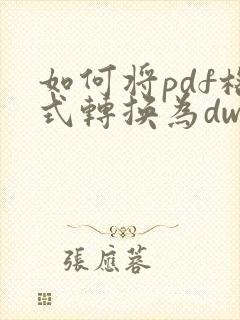 如何将pdf格
式轉換為dw
張應蓉